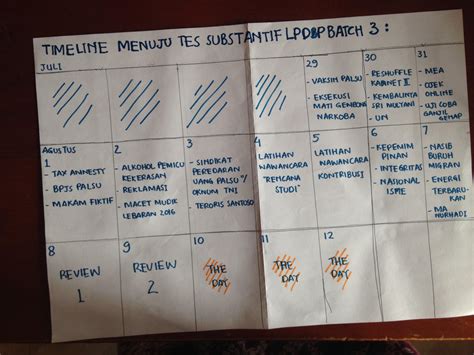 TIMELINE MENUJU TES SUBSTANTIF LPDP BATCH 3 :
JULI
29
- VAKSIN PALSU
- EKSEKUSI
MATI GEMBONG
NARKOBA
30
- RESHUFFLE
KABINET II
- KEMBALINYA
SRI MULYANI
- UN
31
- MEA
- OJEK
ONLINE
- UJI COBA
GANJIL
GENAP
AGUSTUS
1
- TAX AMNESTY
- BPJS PALSU
- MAKAM FIKTIF
2
- ALKOHOL PEMICU
KEKERASAN
- REKLAMASI
- MACET MUDIK
LEBARAN 2016
3
- SINDIKAT
PEREDARAN
UANG PALSU "/
OKNUM TNI
- TERORIS SANTOSO
4
LATIHAN
WAWANCARA
"RENCANA
STUDI"
5
LATIHAN
WAWANCARA
KONTRIBUSI
6
- KEPEMIM
PINAN
- INTEGRITAS
- NASIONAL
ISME
7
- NASIB
BURUH
MIGRAN
- ENERGI
TERBARU
KAN
- MA
NURHADI
8
REVIEW
1
9
REVIEW
2
10
THE
DAY
11
THE
DAY
12
THE
DAY